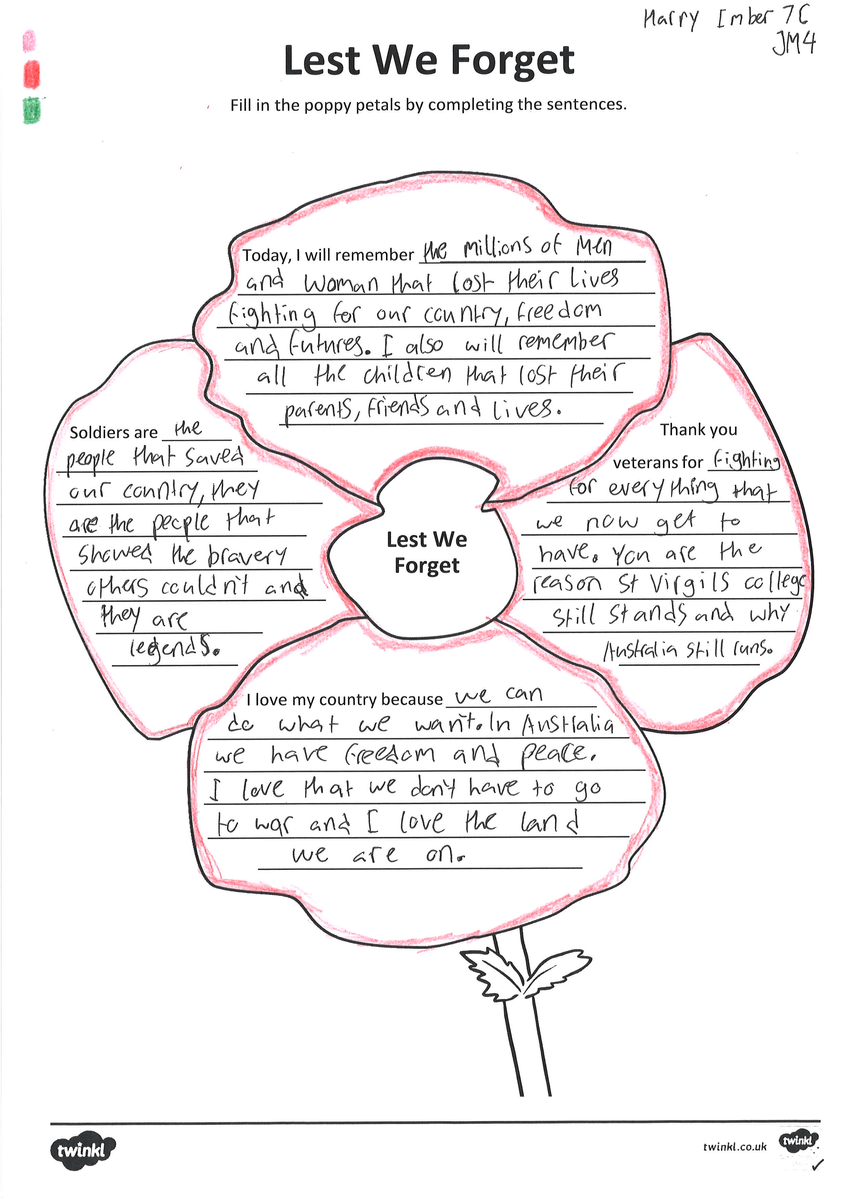 Harry Imber 7C
JM4
Lest We Forget
Fill in the poppy petals by completing the sentences.
Today, I will remember the millions of Men
and Woman that lost their lives
fighting for our country, freedom
and futures. I also will remember
all the children that lost their
parents, friends and lives.
Soldiers are the
people that saved
our country, they
are the people that
showed the bravery
others couldn't and
they are
legends.
Lest We
Forget
Thank you
veterans for fighting
for everything that
we now get to
have. You are the
reason St Virgils college
still stands and why
Australia still runs.
I love my country because we can
do what we want. In Australia
we have freedom and peace.
I love that we don't have to go
to war and I love the land
we are on.
twinkl
twinkl.co.uk
twinkl